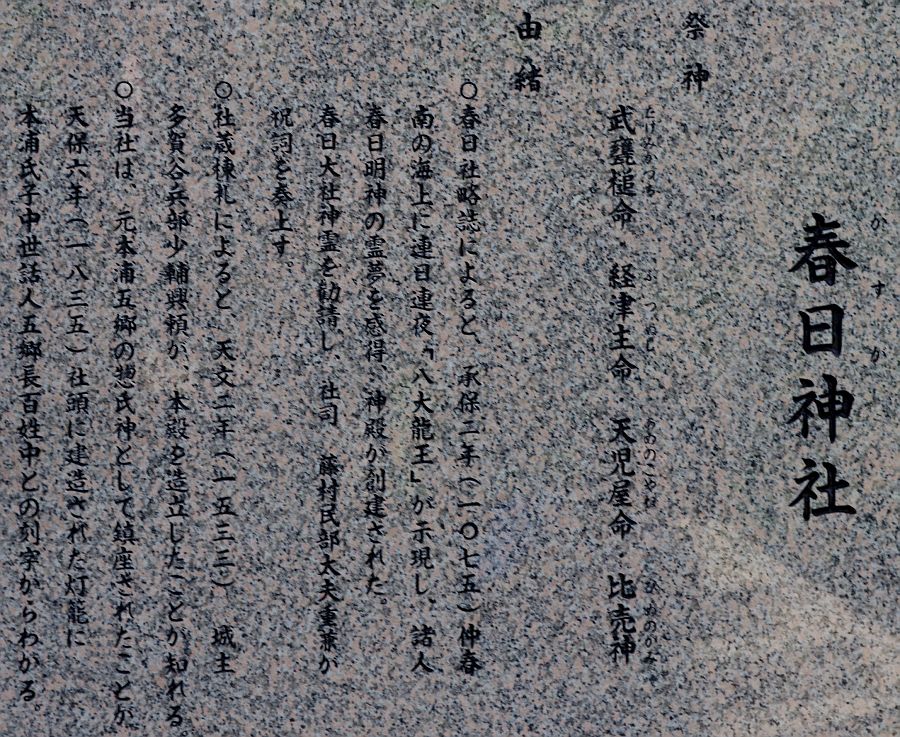 春日神社
かすか
祭神
武甕槌命・経津主命・天児屋命・比売神
たけみかつち ふつぬし あめのこやね ひめのかみ
由緒
○春日社略誌によると、承保二年(一〇七五)仲春
南の海上に連日連夜「八大龍王」が示現し、諸人
春日明神の霊夢を感得、神殿が創建された。
春日大社神霊を勧請し、社司 藤村民部太夫重兼が
祝詞を奏上す。
○社蔵棟札によると、天文二年(一五三三) 城主
多賀谷兵部少輔興頼が、本殿を造立したことが知れる。
○当社は、元本浦五郷の惣氏神として鎮座されたことが
天保六年(一八三五)社頭に建造された灯籠に
本浦氏子中世話人五郷長百姓中との刻字からわかる。